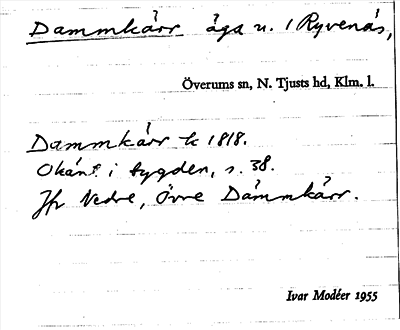 Dammkärr äga u. / Ryvenäs,
Överums sn, N. Tjusts hd, Klm. l.
Dammkärr k 1818.
Okänt i bygden, s. 38.
Jfr Nedre, Övre Dammkärr.
Ivar Modéer 1955